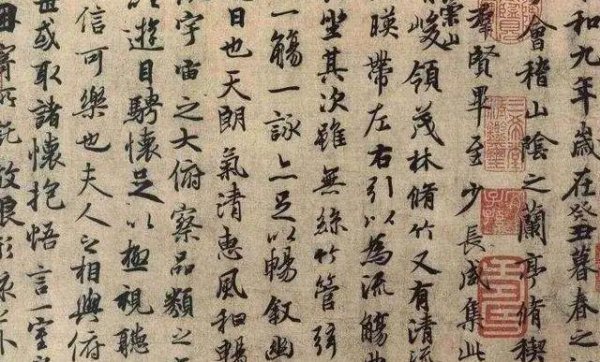 和九年歲在癸丑暮春之
會稽山陰之蘭亭脩稧
羣賢畢至少長咸集此
崇山
峻領茂林脩竹又有清
暎帶左右引以為流觴
坐其次雖無絲竹管弦
一觴一詠亦足以暢敘幽
日也天朗氣清惠風和暢
宇宙之大俯察品類之
以遊目騁懷足以極視聽
信可樂也夫人之相與俯
世或取諸懷抱悟言一室
寄所託放浪形骸